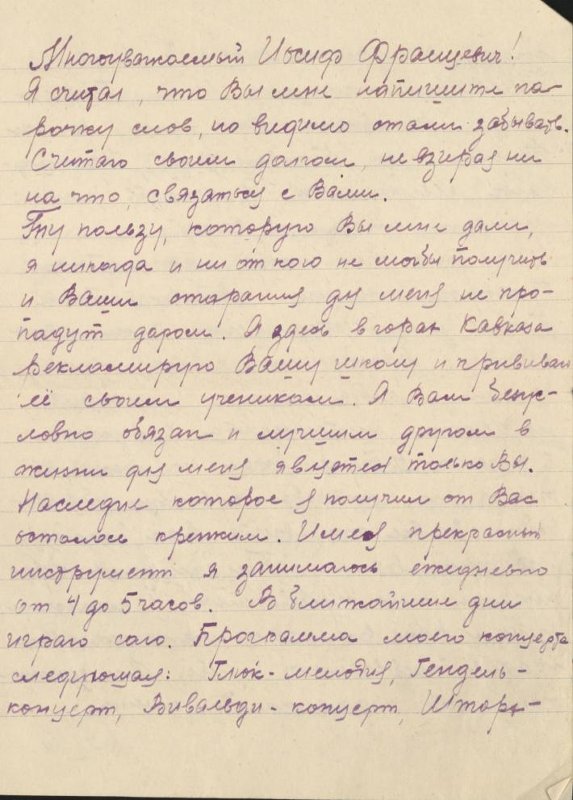 Многоуважаемый Иосиф Францевич!
Я считал, что Вы мне напишите па-
рочку слов, но видимо стали забывать.
Считаю своим долгом, не взирая ни
на что, связаться с Вами.
Ту пользу, которую Вы мне дали,
я никогда и ни от кого не мог бы получить
и Ваши старания для меня не про-
падут даром. Я здесь в горах Кавказа
рекламирую Вашу школу и прививаю
её своим ученикам. Я Вам безус-
ловно обязан и лучшим другом в
жизни для меня является только Вы.
Наследие, которое я получил от Вас
осталось крепким. Имея прекрасный
инструмент я занимаюсь ежедневно
от 4 до 5 часов. В ближайшие дни
играю соло. Программа моего концерта
следующая: Глюк - мелодия, Гендель -
концерт, Вивальди - концерт,